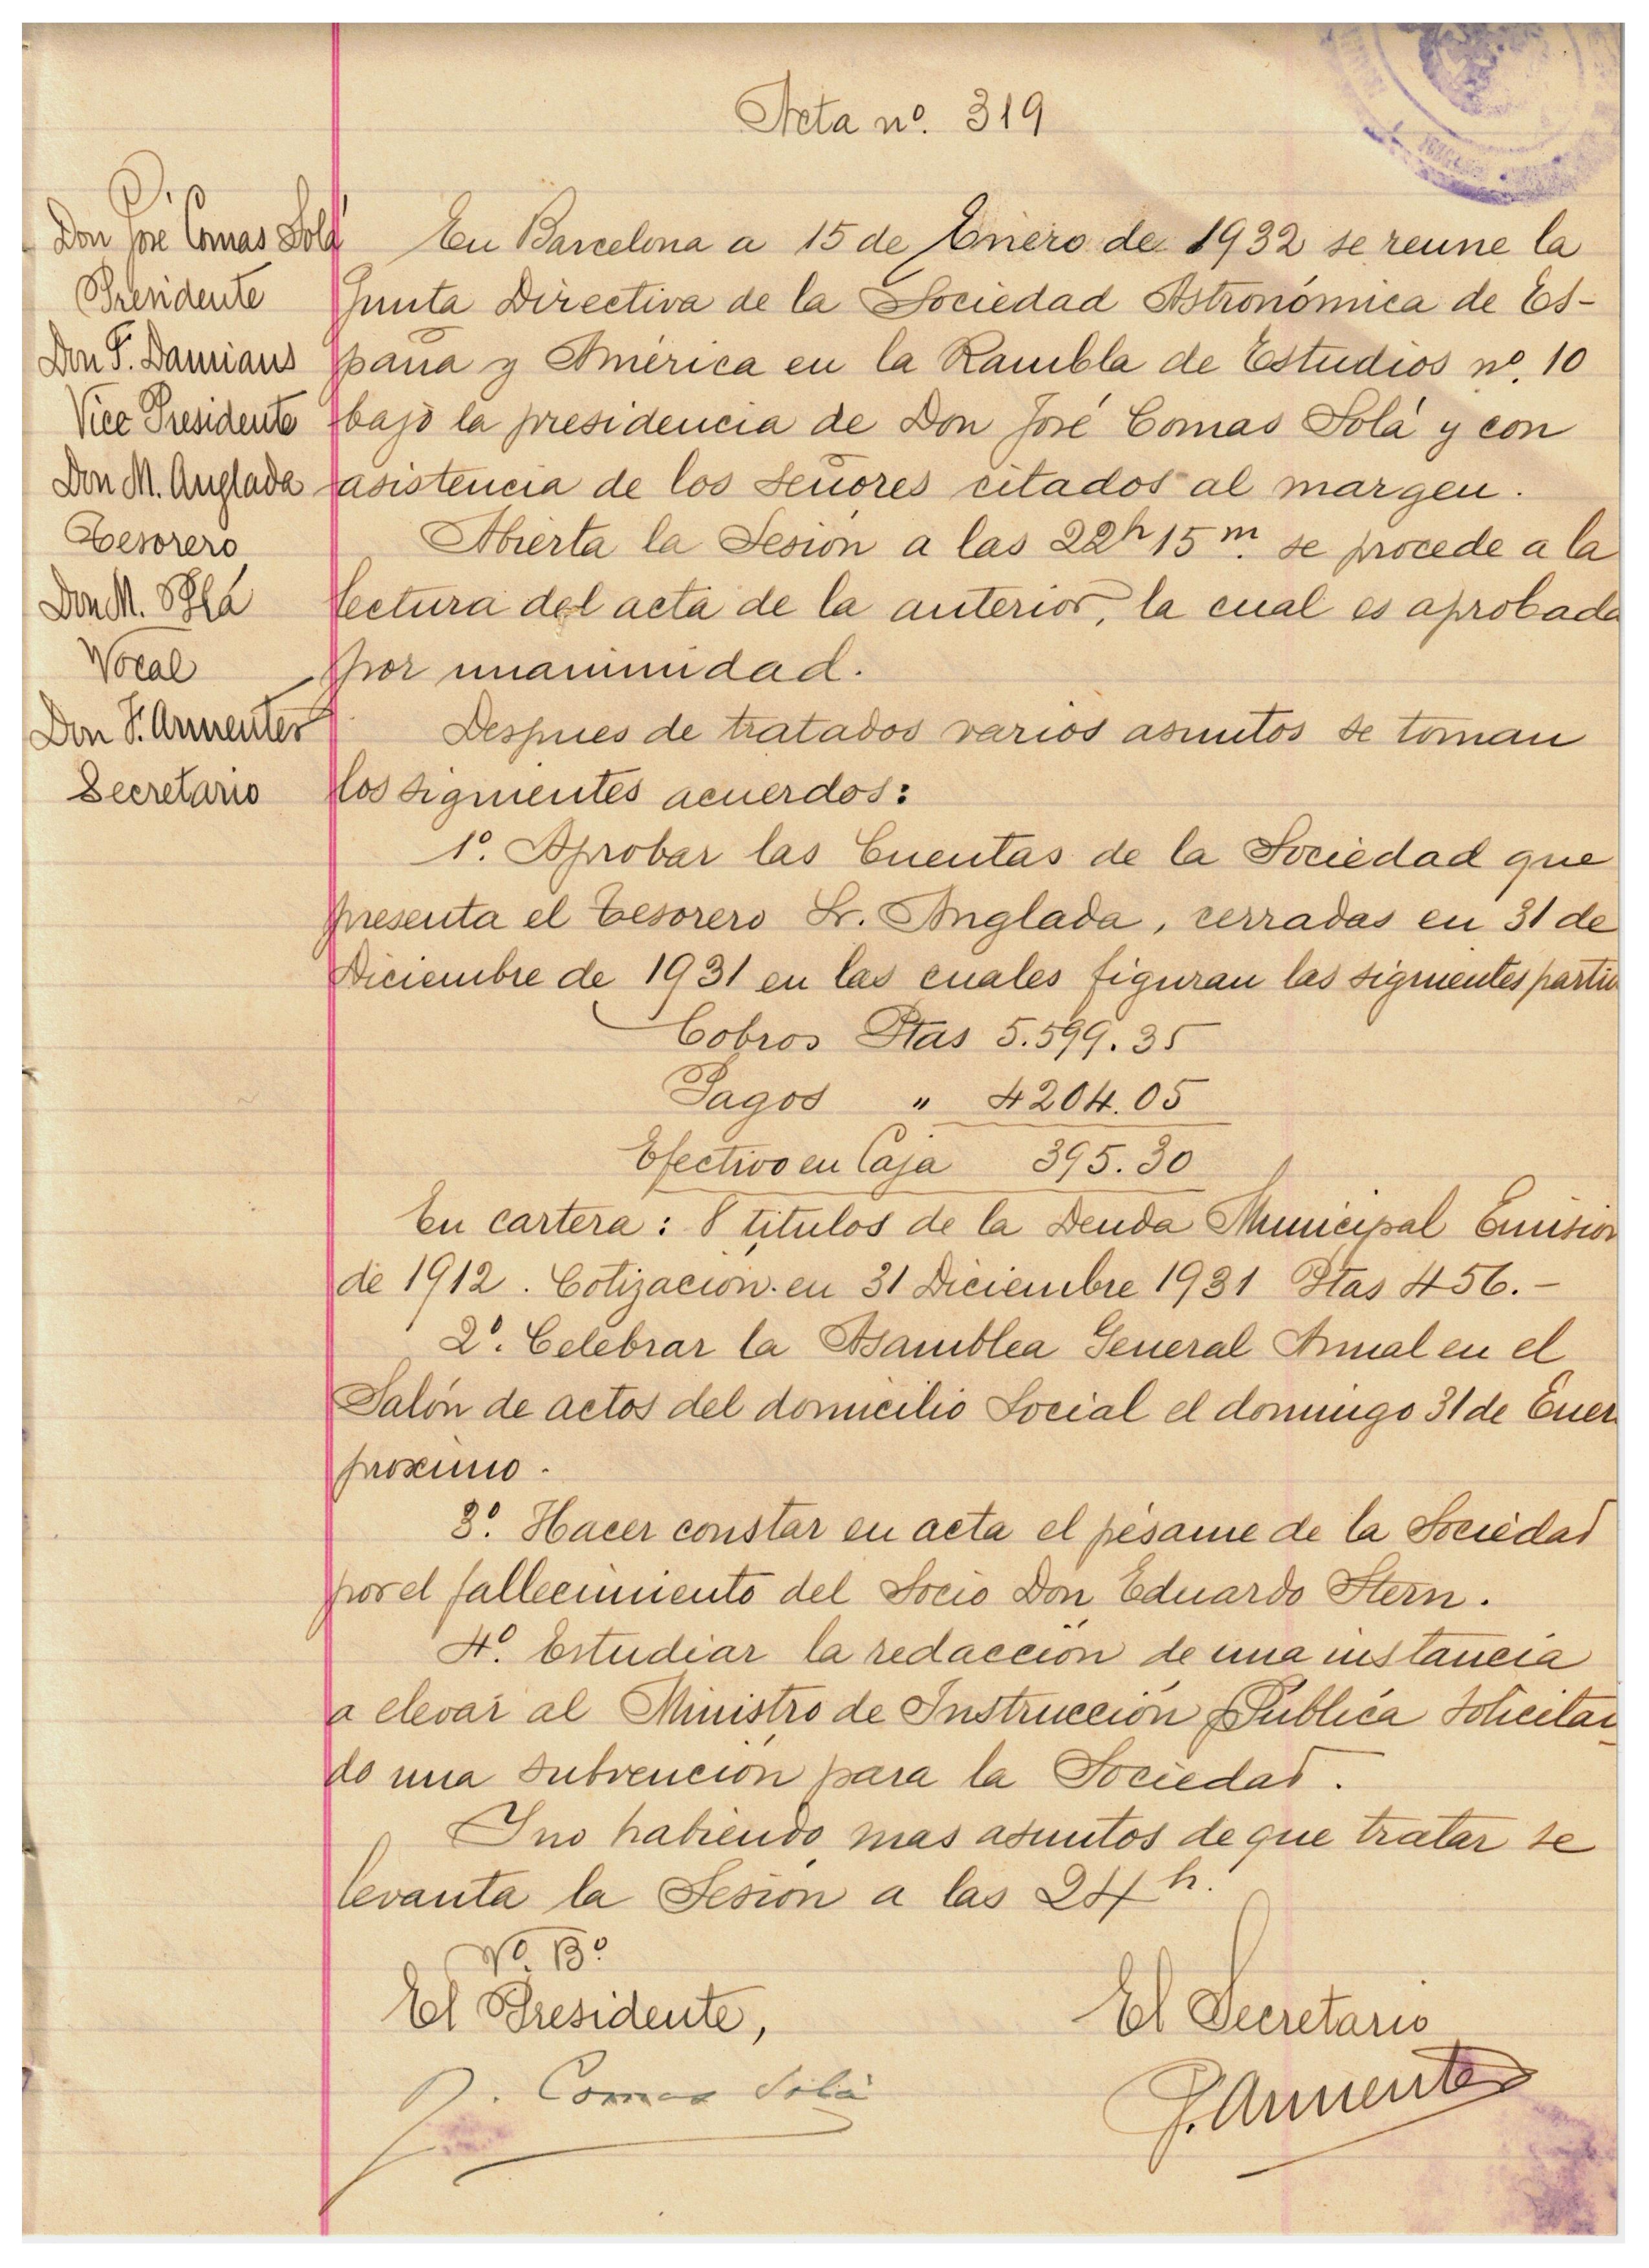 Acta nº. 319
Don José Comas Solá
Presidente
Don F. Damians
Vice Presidente
Don M. Anglada
Tesorero
Don M. Plá
Vocal
Don F. Armenter
Secretario
En Barcelona a 15 de Enero de 1932 se reune la
Junta Directiva de la Sociedad Astronómica de Es-
paña y América en la Rambla de Estudios nº. 10
bajo la presidencia de Don José Comas Solá y con
asistencia de los señores citados al margen.
Abierta la Sesión a las 22h 15m. se procede a la
lectura del acta de la anterior, la cual es aprobada
por unanimidad.
Despues de tratados varios asuntos se toman
los siguientes acuerdos:
1º. Aprobar las Cuentas de la Sociedad que
presenta el Tesorero Sr. Anglada, cerradas en 31 de
Diciembre de 1931 en las cuales figuran las siguientes parti
Cobros Ptas 5.599.35
Pagos " 4204.05
Efectivo en Caja 395.30
En cartera: 8 títulos de la Deuda Municipal Emisión
de 1912. Cotización en 31 Diciembre 1931 Ptas 456.-
2º. Celebrar la Asamblea General Anual en el
Salón de actos del domicilio Social el domingo 31 de Ener
proximo.
3º. Hacer constar en acta el pésame de la Sociedad
por el fallecimiento del Socio Don Eduardo Stern.
4º. Estudiar la redacción de una instancia
a elevar al Ministro de Instrucción Pública solicitan
do una subvención para la Sociedad.
Y no habiendo mas asuntos de que tratar se
levanta la Sesión a las 24h.
Vº Bº
El Presidente,
El Secretario
J. Comas Solá
F. Armenter